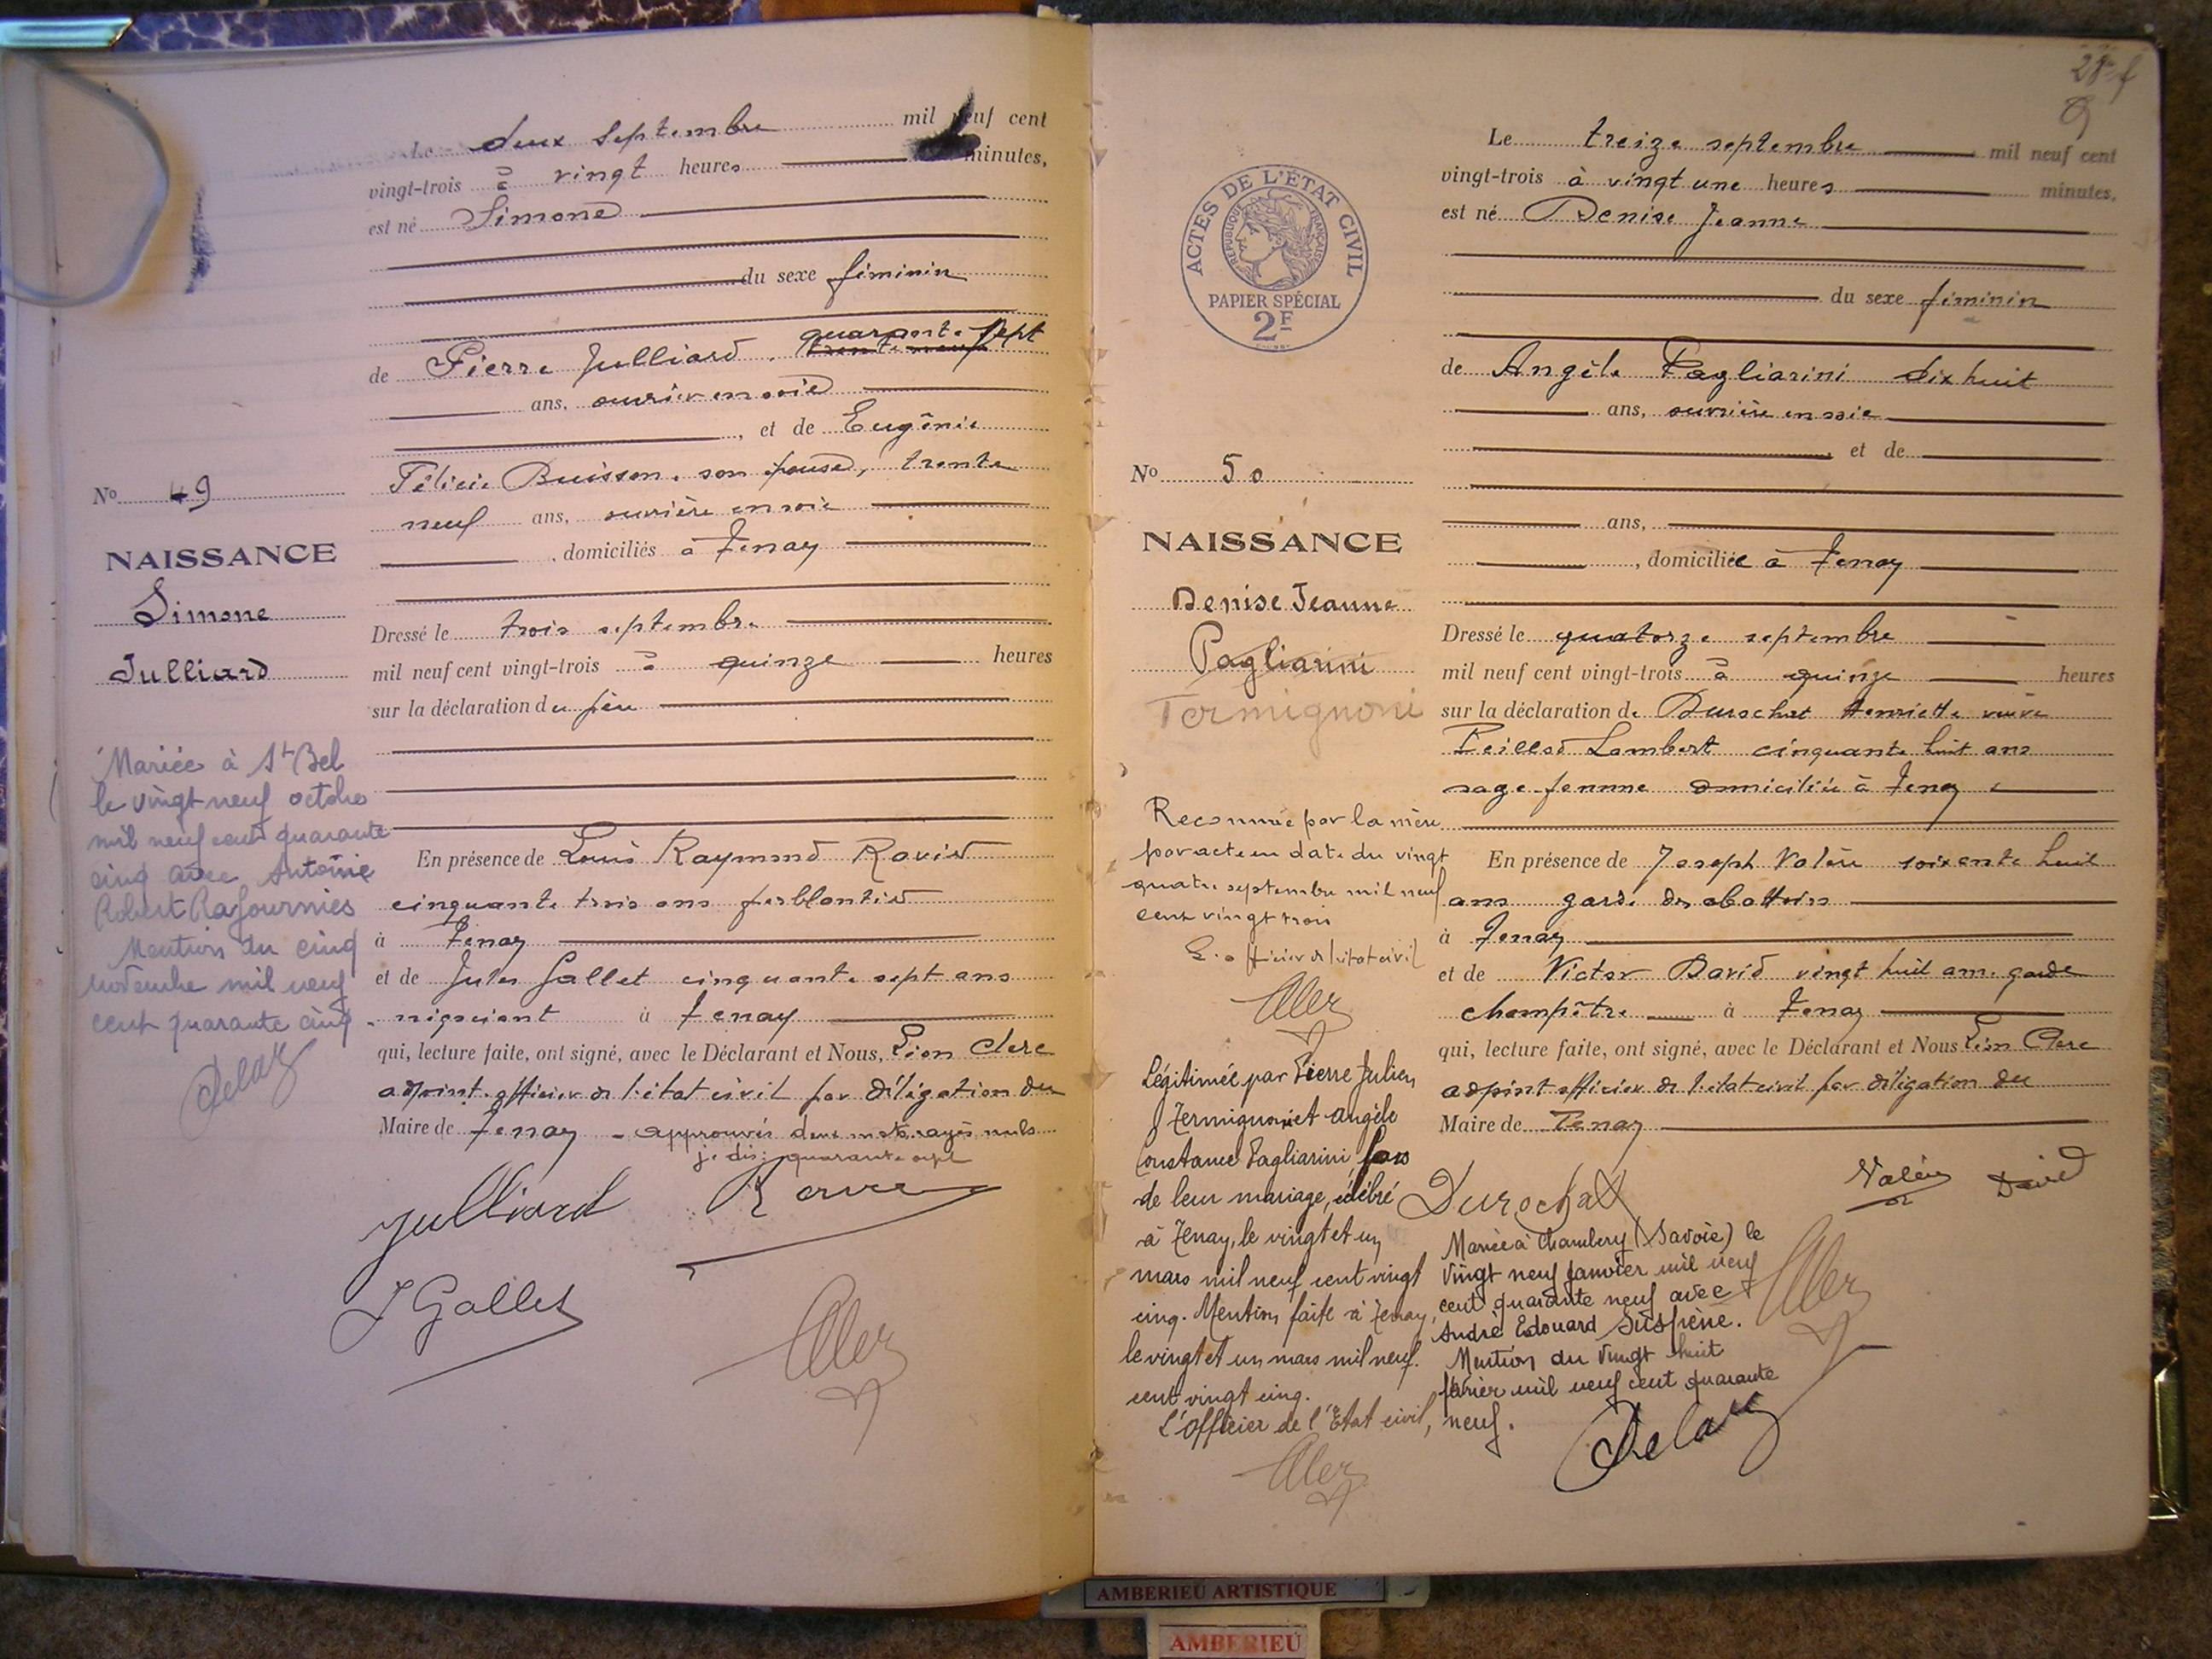 Le deux septembre mil neuf cent
vingt-trois à vingt heures minutes,
est né Simone
du sexe féminin
quarante-sept
de Pierre Julliard, trente neuf
ans, ouvrier en soie
, et de Eugénie
Félicie Buisson, son épouse, trente
neuf ans, ouvrière en soie
, domiciliés à Tenay
Dressé le trois septembre
mil neuf cent vingt-trois à quinze heures
sur la déclaration du père
En présence de Louis Raymond Ravier
cinquante trois ans ferblantier
à Tenay
et de Jules Gallet cinquante sept ans
négociant à Tenay
qui, lecture faite, ont signé, avec le Déclarant et Nous, Léon Clerc
adjoint officier de l'état civil par délégation du
Maire de Tenay - approuvés deux mots rayés nuls
je dis: quarante sept
Julliard
J Gallet
No 49
NAISSANCE
Simone
Julliard
Mariée à St Bel
le vingt neuf octobre
mil neuf cent quarante
cinq avec Antoine
Robert Rafournies
Mention du cinq
novembre mil neuf
cent quarante cinq
Delay
28 f
9
ACTES DE L'ÉTAT CIVIL
RÉPUBLIQUE FRANÇAISE
PAPIER SPÉCIAL
2F
Le treize septembre mil neuf cent
vingt-trois à vingt une heures minutes,
est né Denise Jeanne
du sexe féminin
de Angèle Pagliarini dix huit
ans, ouvrière en soie
, et de
ans,
, domiciliée à Tenay
Dressé le quatorze septembre
mil neuf cent vingt-trois à quinze heures
sur la déclaration de Durochat Henriette veuve
Peillod Lambert cinquante huit ans
sage-femme domiciliée à Tenay
En présence de Joseph Valéry soixante huit
ans garde des abattoirs
à Tenay
et de Victor David vingt huit ans garde
champêtre à Tenay
qui, lecture faite, ont signé, avec le Déclarant et Nous Léon Clerc
adjoint officier de l'état civil par délégation du
Maire de Tenay
Durochat
Valéry
David
Mariée à Chambéry (Savoie) le
vingt neuf janvier mil neuf
cent quarante neuf avec
André Edouard Suspène.
Mention du vingt huit
février mil neuf cent quarante
neuf.
Delay
No 50
NAISSANCE
Denise Jeanne
Pagliarini
Termignoni
Reconnue par la mère
par acte en date du vingt
quatre septembre mil neuf
cent vingt trois
L'officier de l'état civil
Clerc
Légitimée par Pierre Julien
Termignoni et Angèle
Constance Pagliarini, lors
de leur mariage, célébré
à Tenay, le vingt et un
mars mil neuf cent vingt
cinq. Mention faite à Tenay,
le vingt et un mars mil neuf
cent vingt cinq.
L'Officier de l'État civil,
Clerc
AMBERIEU ARTISTIQUE
AMBERIEU